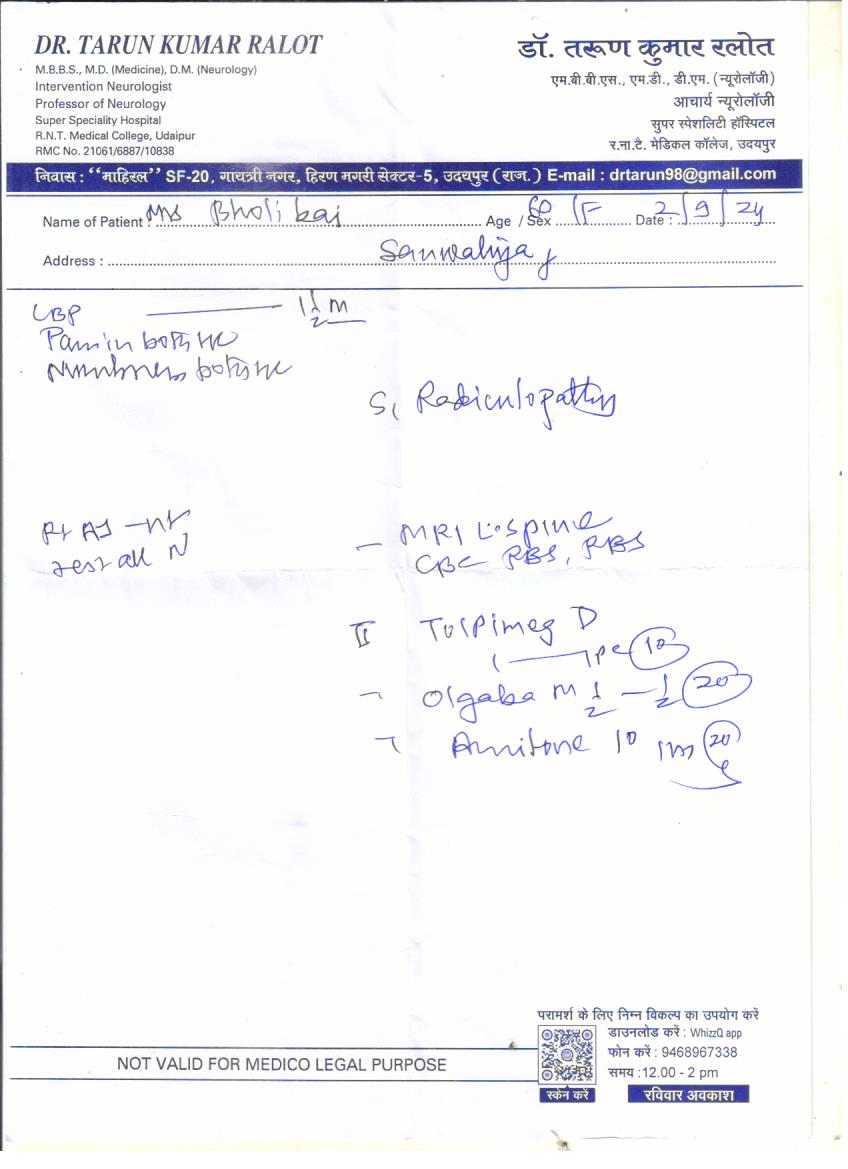 DR. TARUN KUMAR RALOT
M.B.B.S., M.D. (Medicine), D.M. (Neurology)
Intervention Neurologist
Professor of Neurology
Super Speciality Hospital
R.N.T. Medical College, Udaipur
RMC No. 21061/6887/10838
डॉ. तरूण कुमार रलोत
एम.बी.बी.एस., एम.डी., डी.एम. (न्यूरोलॉजी)
आचार्य न्यूरोलॉजी
सुपर स्पेशलिटी हॉस्पिटल
र.ना.टै. मेडिकल कॉलेज, उदयपुर
निवास : “माहिरल” SF-20, गायत्री नगर, हिरण मगरी सेक्टर-5, उदयपुर (राज.) E-mail : drtarun98@gmail.com
Name of Patient : Mrs Bholi bai Age / Sex 60 / F Date : 2/9/24
Address : Sanwaliya ji
LBP — 1 1/2 M
Pain in both
Numbness both
S1 Radiculopathy
Rt AJ
rest all N
- MRI L-spine
CBC RBS,
D
1 — 10
- Olgaba M 1/2 — 1/2 20
10 20
परामर्श के लिए निम्न विकल्प का उपयोग करें
डाउनलोड करें : WhizzQ app
फोन करें : 9468967338
समय : 12.00 - 2 pm
NOT VALID FOR MEDICO LEGAL PURPOSE
स्केन करें
रविवार अवकाश